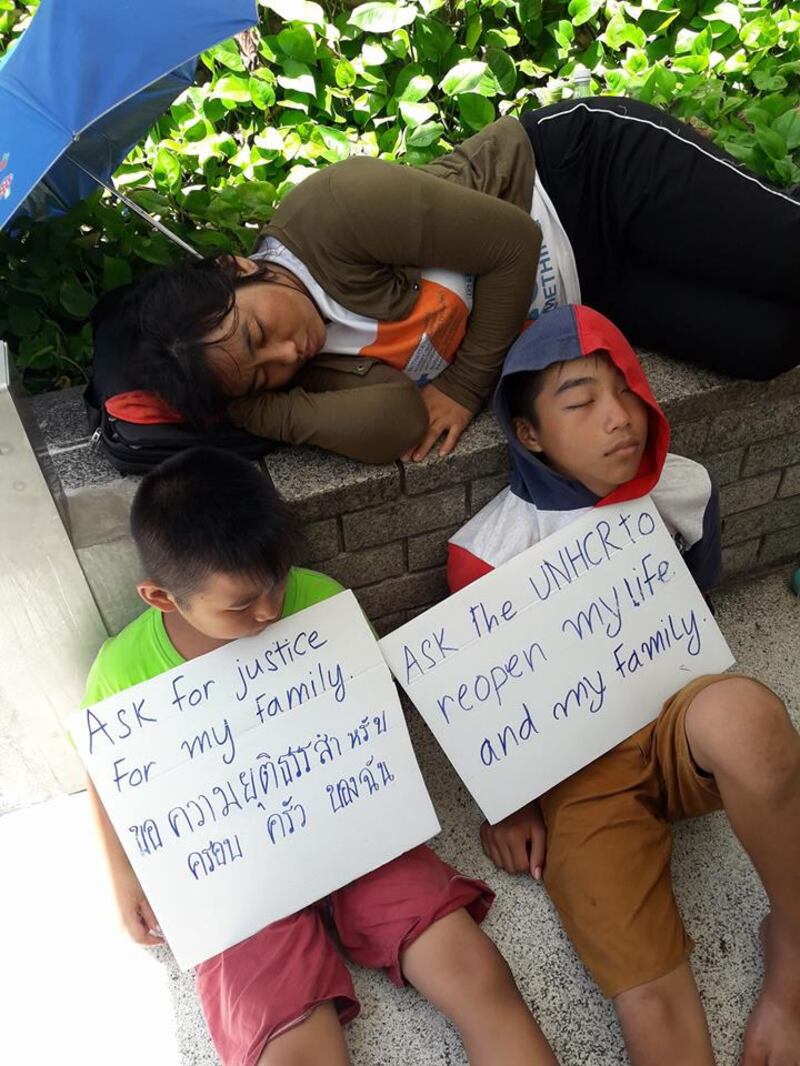 Ask for justice
for my family.
ขอ ความยุติธรรมสำหรับ
ครอบ ครัว ของฉัน
ASK The UNHCR to
reopen my life
and my family.
METHIN